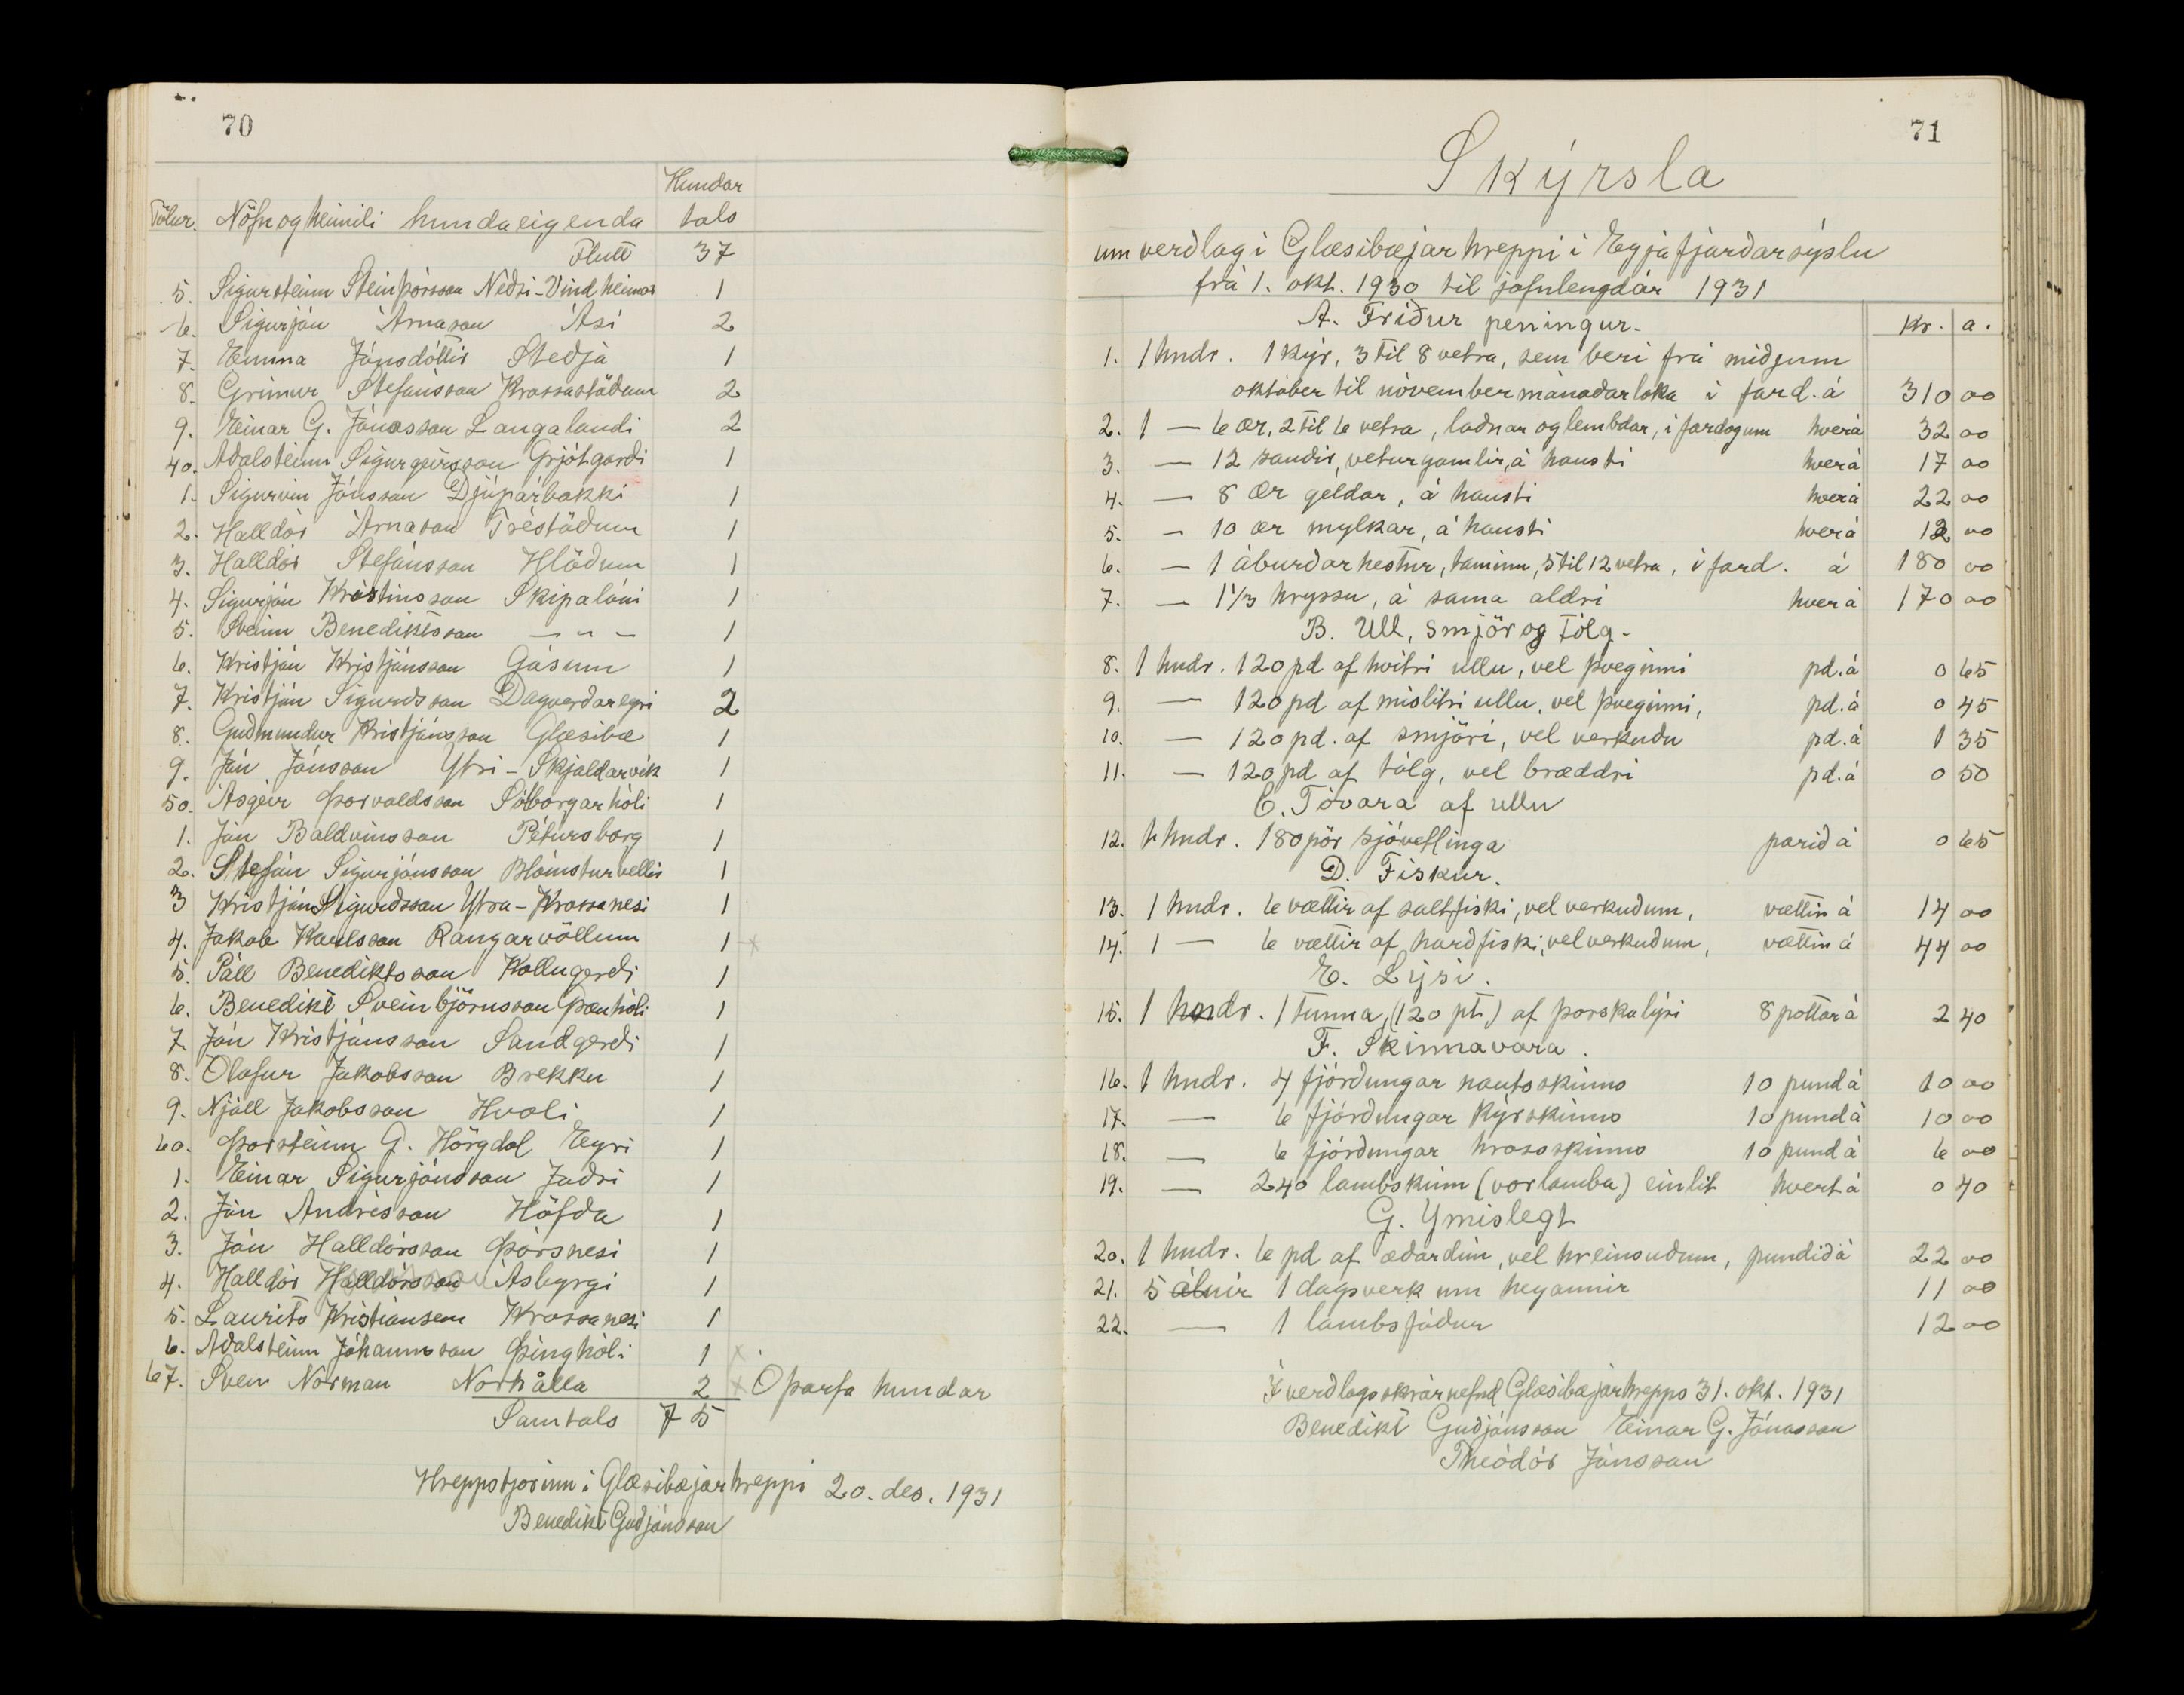 70
Hundar
Tölur. Nöfn og heimili hundaeigenda tals
Flutt 37
5. Sigursteinn Steinþórsson Neðri-Vindheimar 1
6. Sigurján Árnason Ási 2
7. Emma Jónsdóttir Steðja 1
8. Grímur Stefánsson Krossastöðum 2
9. Einar G. Jónasson Langalandi 2
40. Aðalsteinn Sigurgeirsson Grjótgarði 1
1. Sigurvin Jónsson Djúpárbakki 1
2. Halldór Árnason Tréstöðum 1
3. Halldór Stefánsson Hlöðum 1
4. Sigurjón Kristinsson Skipalóni 1
5. Sveinn Benediktsson — " — 1
6. Kristján Kristjánsson Gásum 1
7. Kristján Sigurðsson Dagverðareyri 2
8. Guðmundur Kristjánsson Glæsibæ 1
9. Jón Jónsson Ytri-Skjaldarvík 1
50. Ásgeir Þorvaldsson Sólborgarhóli 1
1. Jón Baldvinsson Pétursborg 1
2. Stefán Sigurjónsson Blómsturvellir 1
3 Kristján Sigurðsson Ytra-Krossanesi 1
4. Jakob Karlsson Rangárvöllum 1 x
5. Páll Benediktsson Kollugerði 1
6. Benedikt Sveinbjörnsson Þænhóli 1
7. Jón Kristjánsson Sandgerði 1
8. Ólafur Jakobsson Brekku 1
9. Njáll Jakobsson Hvoli 1
60. Þorsteinn G. Hörgdal Eyri 1
1. Einar Sigurjónsson Jaðri 1
2. Jón Andrésson Höfða 1
3. Jón Halldórsson Þórsnesi 1
4. Halldór Halldórsson Ásbyrgi 1
5. Laurits Kristiansen Krossanesi 1
6. Aðalsteinn Jóhannsson Þinghóli 1 x
67. Sven Norman Norhålla 2 x Óþarfa hundar
Samtals 75
Hreppstjórinn í Glæsibæjarhreppi 20. des. 1931
Benedikt Guðjónsson
71
Skýrsla
um verðlag í Glæsibæjarhreppi í Eyjafjarðarsýslu
frá 1. okt. 1930 til jafnlengdar 1931
A. Fríður peningur. Kr. a.
1. 1 hndr. 1 kýr, 3 til 8 vetra, sem beri frá miðjum
október til nóvembermánaðarloka í fard. á 310 00
2. 1 — 6 ær, 2 til 6 vetra, loðnar og lembdar, í fardögum hver á 32 00
3. — 12 sauðir, veturgamlir, á hausti hver á 17 00
4. — 8 ær geldar, á hausti hver á 22 00
5. — 10 ær mylkar, á hausti hver á 12 00
6. — 1 áburðarhestur, taminn, 5 til 12 vetra, í fard. á 180 00
7. — 1 1/3 hryssu, á sama aldri hver á 170 00
B. Ull, smjör og tólg.
8. 1 hndr. 120 pd af hvítri ullu, vel þveginni pd. á 0 65
9. — 120 pd af mislitri ullu, vel þveginni, pd. á 0 45
10. — 120 pd. af smjöri, vel verkuðu pd. á 1 35
11. — 120 pd af tólg, vel bræddri pd. á 0 50
C. Tóvara af ullu
12. 1 hndr. 180 pör sjóvetlinga parið á 0 65
D. Fiskur.
13. 1 hndr. 6 vættir af saltfiski, vel verkuðum, vættin á 14 00
14. 1 — 6 vættir af harðfiski, vel verkuðum, vættin á 44 00
E. Lýsi.
15. 1 hndr. 1 tunna, (120 pt.) af þorskalýsi 8 pottar á 2 40
F. Skinnavara.
16. 1 hndr. 4 fjórðungar nautsskinns 10 pund á 10 00
17. — 6 fjórðungar kýrskinns 10 pund á 10 00
18. — 6 fjórðungar hrossskinns 10 pund á 6 00
19. — 240 lambskinn (vorlamba) einlit hvert á 0 40
G. Ýmislegt
20. 1 hndr. 6 pd af æðardún, vel hreinsuðum, pundið á 22 00
21. 5 álnir 1 dagsverk um heyannir 11 00
22. — 1 lambsfóður 12 00
Í verðlagsskrárnefnd Glæsibæjarhrepps 31. okt. 1931
Benedikt Guðjónsson Einar G. Jónasson
Theódór Jónsson